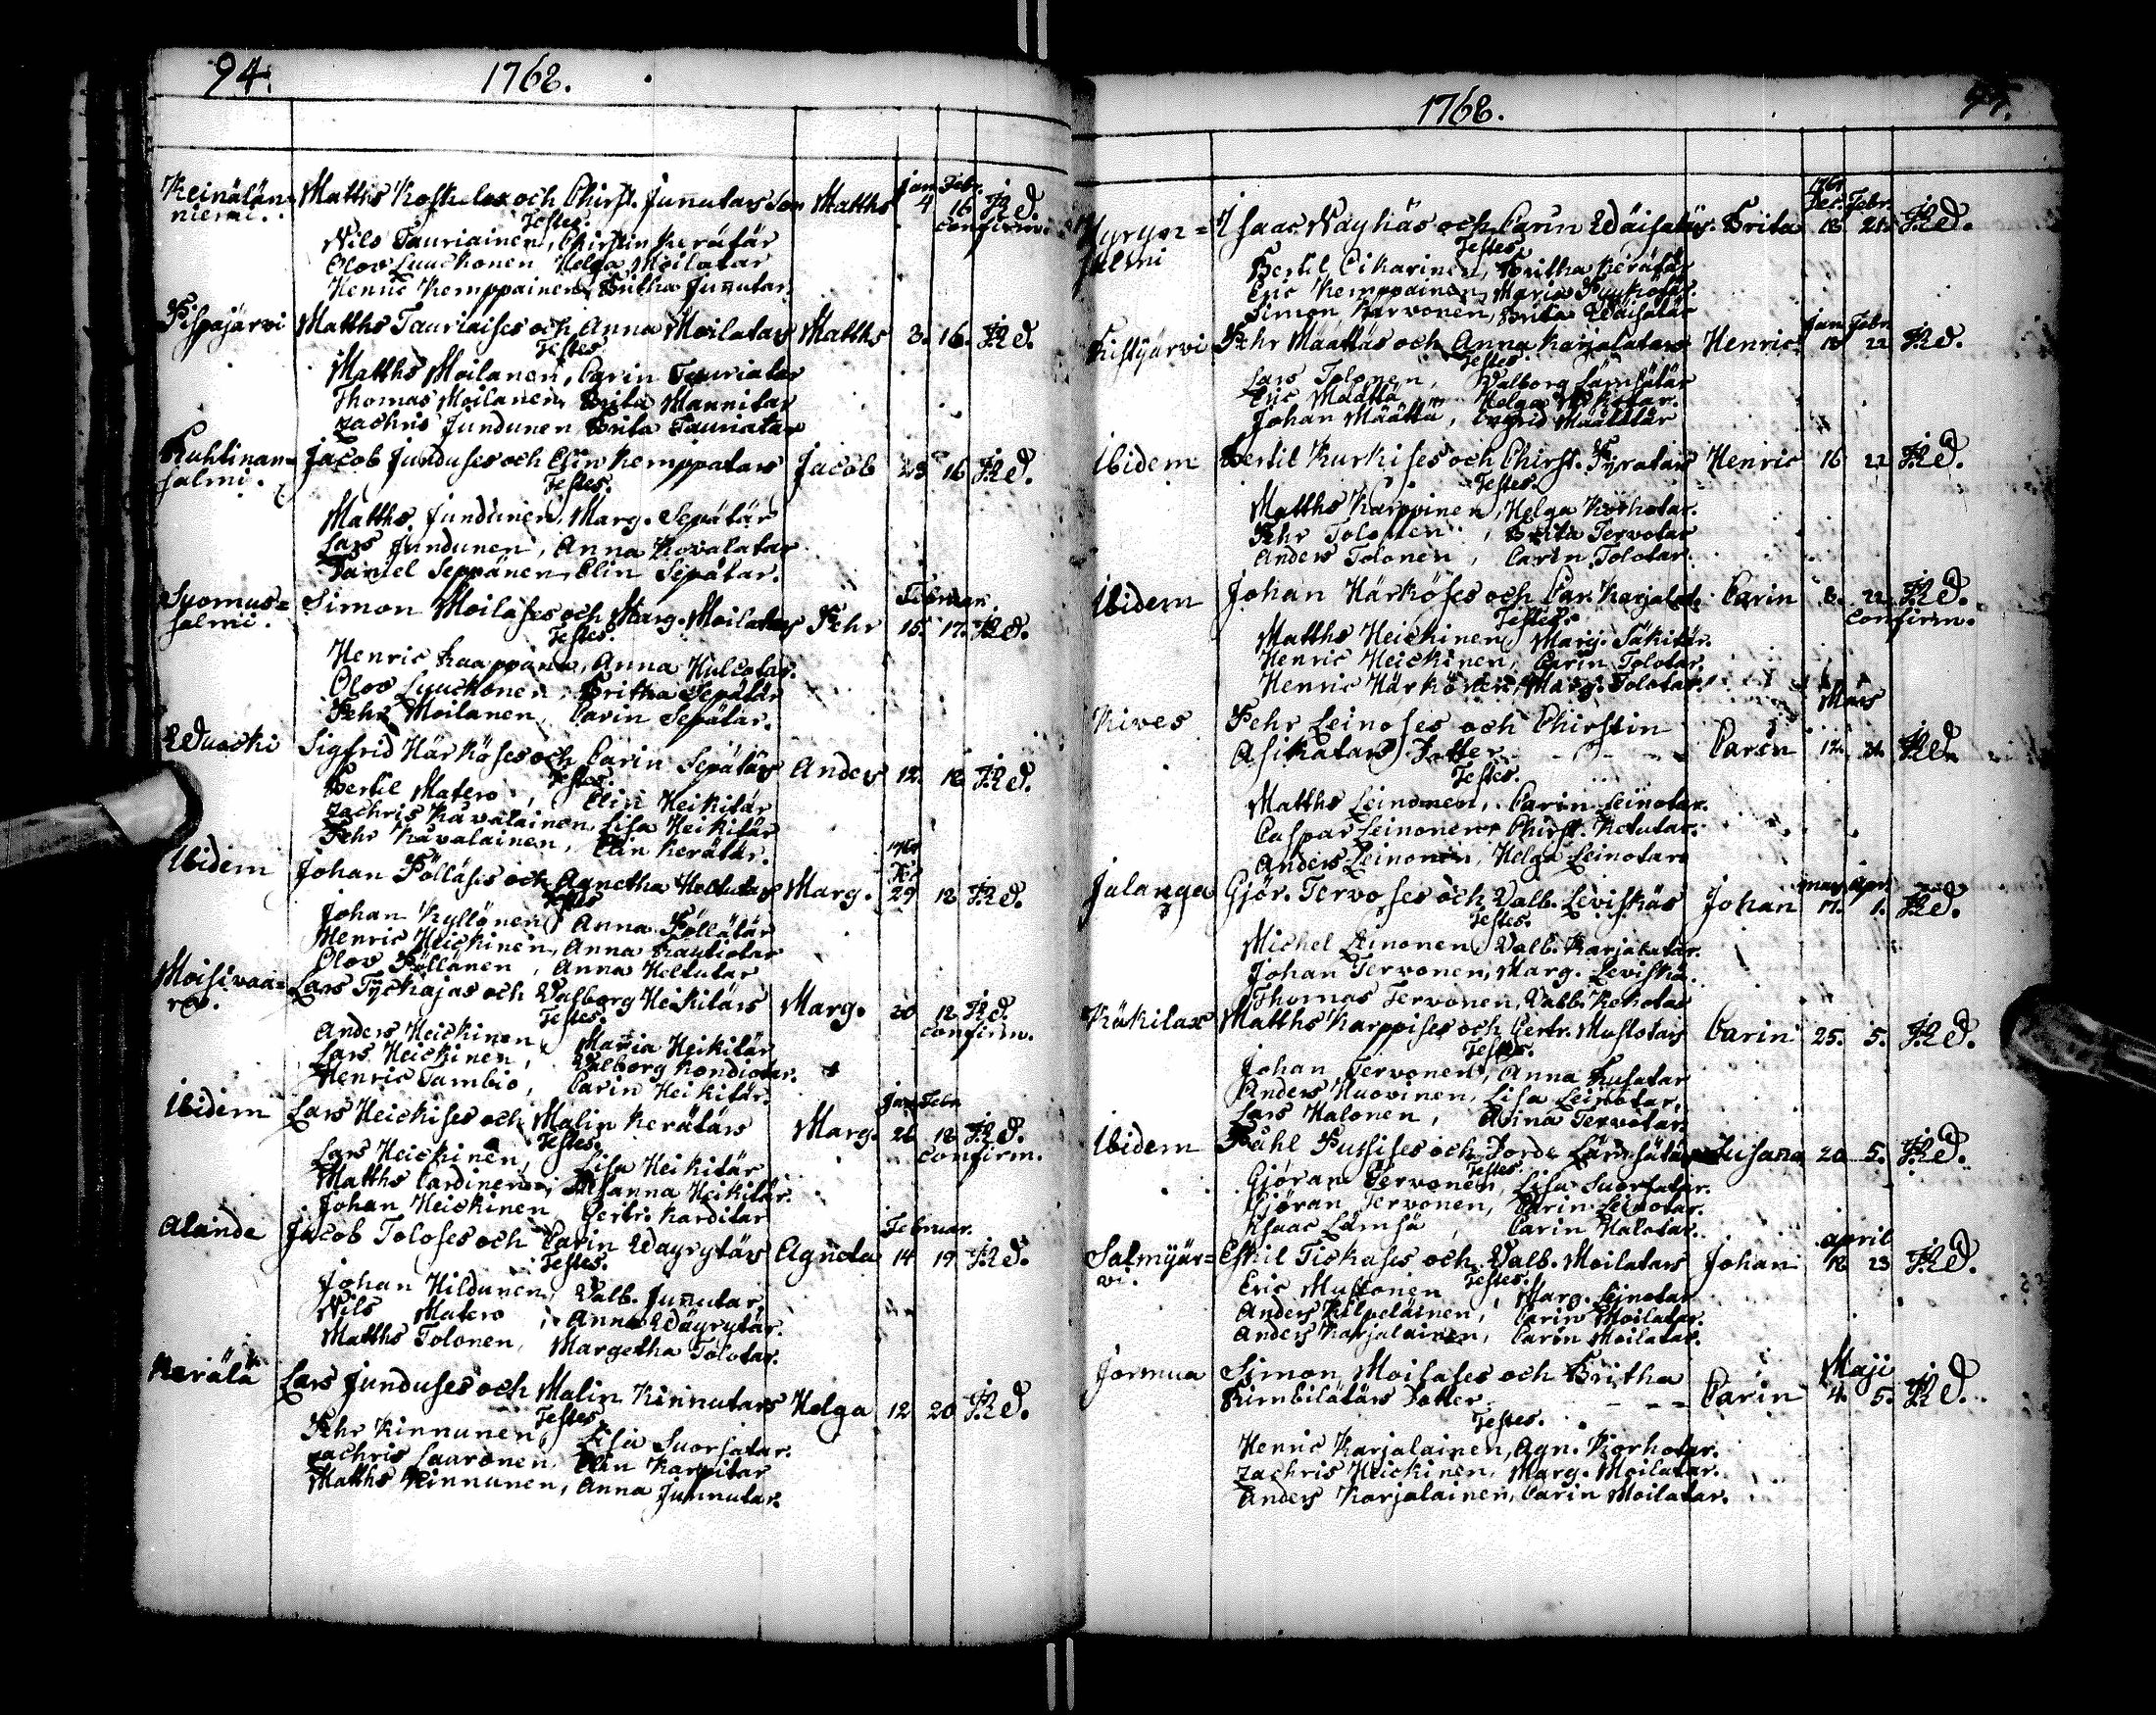 94. 1768.
Jan. Febr.
Keinälän= Matths Koskelos och Christ. Junutars Son Matths 4 16. J.R.d.
niemi. Testes. confirm.
Nils Tauriainen, Christin Kerätär
Olov Luuckonen Helga Moilatar
Henric Kemppainen, Britha Junutar.
Pispajärvi Matths Tauriaises och Anna Moilatars Matths 3. 16. J.R.d.
Testes
Matths Moilanen, Carin Tauriatar
Thomas Moilanen, Brita Mannitar
Zachris Jundunen Brita Tauriatar
Ruhtinan= Jacob Junduses och Elin Kemppatars Jacob 23 16 J.R.d.
salmi. Testes.
Matths Jundunen, Marg. Sepätär
Lars Jundunen, Anna Kovalatar
Daniel Seppänen, Elin Sepätar.
Februar.
Suomus= Simon Moilases och Marg. Moilatars Pehr 15. 17. J.R.d.
salmi. Testes.
Henric Kaappinen, Anna Hulcotar.
Olov Luuckonen, Britha Sepätär
Pehr Moilanen, Carin Sepätar.
Wuocki Sigfrid Härköses och Carin Sepätärs Anders 12. 18 J.R.d.
Testes.
Bertil Matero, Elin Heikitär
Zachris Kävälainen, Lisa Heikitär
Pehr Kävalainen, Elin Kerätär.
1767
Dec.
Ibidem Johan Pölläses och Agnetha Heltutars Marg. 29 18 J.R.d.
Testes
Johan Kyllönen, Anna Pöllätär
Henric Heickinen, Anna Rautiotar
Olov Pöllänen, Anna Heltutar
Moisivaa= Lars Tyckäjas och Valborg Heikitärs Marg. 20 18 J.R.d.
ra. Testes. confirm.
Anders Heickinen, Maria Heikitär
Lars Heickinen, Valborg Kondiotar.
Henric Tambio, Carin Heikitär.
Jan. Febr.
Ibidem Lars Heickises och Malin Kerätärs Marg. 26 18 J.R.d.
Testes. confirm.
Lars Heickinen, Lisa Heikitär
Matths Cardinen, Susanna Heikitär.
Johan Heickinen, Gertr. Karditar
Februar.
Alande Jacob Toloses och Carin Wäyrytärs Agneta 14 19 J.R.d.
Testes.
Johan Hildunen, Valb. Junutar,
Nils Matero, Anna Wäyrytär.
Matths Tolonen, Margetha Tolotar.
Kerälä Lars Junduses och Malin Kinnutars Helga 12 20 J.R.d.
Testes.
Pehr Kinnunen, Lisa Suorsatar.
Zachris Lauronen, Elin Karpitar
Matths Kinnunen, Anna Junnutar.
1768. 95.
1767
Dec. Febr.
Hyryn= Isaac Nayhäs och Carin Wäisatärs. Brita 18 21. J.R.d.
salmi Testes.
Bertil Cikarinen, Britha Kerätär
Eric Kemppainen, Maria Puukotar.
Simon Karvonen, Brita Wäisätär
Jan. Febr.
Ristijärvi Pehr Määttäs och Anna Karjalatars Henric 18 22 J.R.d.
Testes.
Lars Tolonen, Valborg Lämsätär
Eric Määttä, Helga Keckotar.
Johan Määttä, Ingrid Määttätär
Ibidem Bertil Kurkises och Christ. Pyratars Henric 16 22 J.R.d.
Testes.
Matths Karppinen, Helga Korhotar.
Pehr Tolonen, Brita Tervotar
Anders Tolonen, Carin Tolotar.
Ibidem Johan Härköses och Car. Karjalat. Carin 8. 22. J.R.d.
Testes. confirm.
Matths Heickinen, Marg. Säkitär.
Henric Heickinen, Carin Tolotar.
Henric Härkönen, Marg. Tolotar.
Mars
Kives Pehr Leinoses och Christin
Asikatars Dotter Carin 12. 21. J.R.d.
Testes.
Matths Leinonen, Carin Leinotar.
Caspar Leinonen, Christ. Kelutar.
Anders Leinonen, Helga Leinotar.
mars Apri
Jalanga Gjör. Tervoses och Valb. Leviskäs Johan 17. 1. J.R.d.
Testes.
Michel Leinonen, Valb. Karjalatar.
Johan Tervonen, Marg. Leviskä.
Thomas Tervonen, Valb. Kekotar
Käkilax Matths Karppises och Gertr. Mustotars Carin 25. 5. J.R.d.
Testes.
Johan Tervonen, Anna Kusatar
Anders Huovinen, Lisa Leinotar,
Lars Halonen, Anna Tervotar.
Ibidem Påhl Pussises och Jorde Lämsätärs Susana 20 5. J.R.d.
Testes.
Gjöran Tervonen, Lisa Suorsatar.
Gjöran Tervonen, Carin Leinotar.
Isaac Lämsä, Carin Halotar.
April
Salmijär= Eskil Tickases och Valb. Moilatars Johan 18 23 J.R.d.
vi. Testes.
Eric Mustonen, Marg. Leinotar
Anders Kilpeläinen, Carin Moilatar.
Anders Karjalainen, Carin Moilatar.
Maji
Jormua Simon Moilases och Britha
Rimbilätärs Dotter Carin 4. 5. J.R.d.
Testes.
Henric Karjalainen, Agn. Korhotar.
Zachris Heickinen, Marg. Moilatar.
Anders Karjalainen, Carin Moilatar.